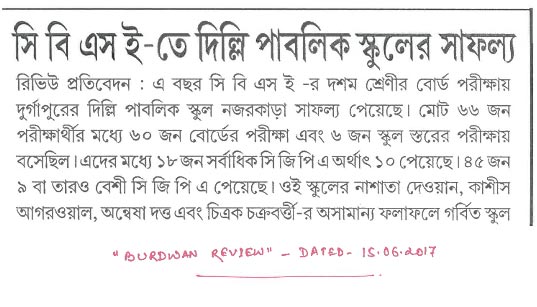 সি বি এস ই-তে দিল্লি পাবলিক স্কুলের সাফল্য
রিভিউ প্রতিবেদন : এ বছর সি বি এস ই -র দশম শ্রেণীর বোর্ড পরীক্ষায়
দুর্গাপুরের দিল্লি পাবলিক স্কুল নজরকাড়া সাফল্য পেয়েছে। মোট ৬৬ জন
পরীক্ষার্থীর মধ্যে ৬০ জন বোর্ডের পরীক্ষা এবং ৬ জন স্কুল স্তরের পরীক্ষায়
বসেছিল। এদের মধ্যে ১৮ জন সর্বাধিক সি জি পি এ অর্থাৎ ১০ পেয়েছে। ৪৫ জন
৯ বা তারও বেশী সি জি পি এ পেয়েছে। ওই স্কুলের নাশাতা দেওয়ান, কাশীস
আগরওয়াল, অন্বেষা দত্ত এবং চিত্রক চক্রবর্ত্তী-র অসামান্য ফলাফলে গর্বিত স্কুল
"BURDWAN REVIEW" - DATED- 15.06.2017